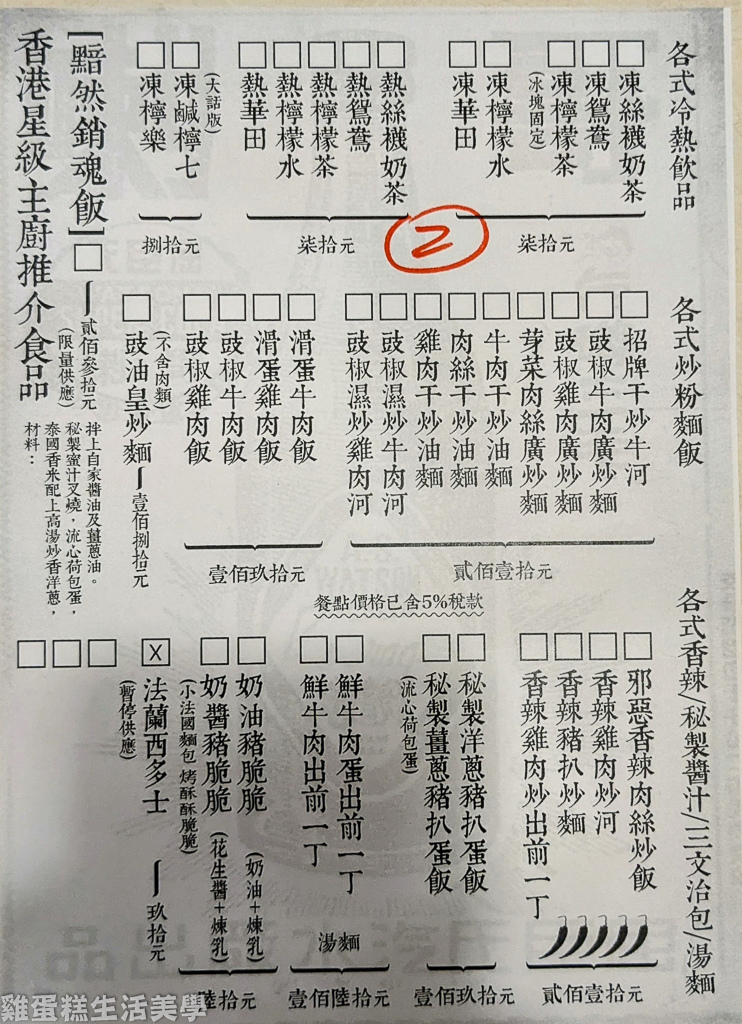 各式冷熱飲品
□凍絲襪奶茶
□凍鴛鴦
□凍檸檬茶
(冰塊固定)
□凍檸檬水
□凍華田
柒拾元
□熱絲襪奶茶
□熱鴛鴦
□熱檸檬茶
□熱檸檬水
□熱華田
柒拾元
2
□凍鹹檸七
(大話版)
□凍檸樂
捌拾元
[黯然銷魂飯]□
貳佰參拾元
(限量供應)
香港星級主廚推介食品
材料：
泰國香米配上高湯炒香洋蔥，
秘製蜜汁叉燒，流心荷包蛋，
拌上自家醬油及薑蔥油。
各式炒粉麵飯
□招牌干炒牛河
□豉椒牛肉廣炒麵
□豉椒雞肉廣炒麵
□芽菜肉絲廣炒麵
□牛肉干炒油麵
□肉絲干炒油麵
□雞肉干炒油麵
□豉椒濕炒牛肉河
□豉椒濕炒雞肉河
貳佰壹拾元
□滑蛋牛肉飯
□滑蛋雞肉飯
□豉椒牛肉飯
□豉椒雞肉飯
壹佰玖拾元
□豉油皇炒麵
(不含肉類)
壹佰捌拾元
餐點價格已含5%稅款
各式香辣/秘製醬汁/三文治包/湯麵
□邪惡香辣肉絲炒飯
□香辣雞肉炒河
□香辣豬扒炒麵
□香辣雞肉炒出前一丁
貳佰壹拾元
□秘製洋蔥豬扒蛋飯
□秘製薑蔥豬扒蛋飯
(流心荷包蛋)
壹佰玖拾元
□鮮牛肉蛋出前一丁
□鮮牛肉出前一丁
湯麵
壹佰陸拾元
□奶油豬脆脆 (奶油+煉乳)
□奶醬豬脆脆 (花生醬+煉乳)
(小法國麵包 烤酥酥脆脆)
陸拾元
X法蘭西多士
(暫停供應)
玖拾元
雞蛋糕生活美學